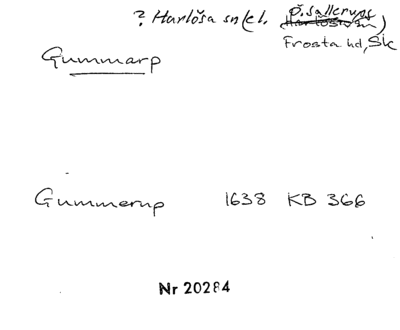 ? Harlösa sn (el. Ö. Sallerups
Harlösa sn)
Frosta hd, Sk
Gummarp
Gummerup 1638 KB 366
Nr 20284